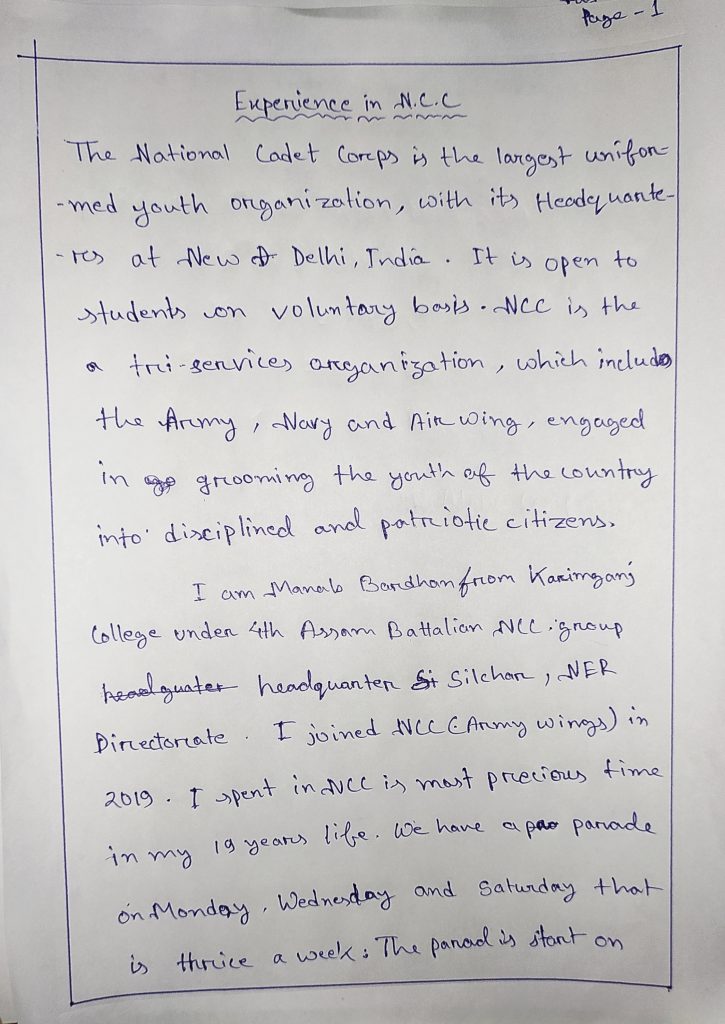 Page - 1
Experience in N.C.C
The National Cadet Corps is the largest unifor=
-med youth organization, with its Headquarte-
-rs at New Delhi, India. It is open to
students on voluntary basis. NCC is the
a tri-services organization, which include
the Army, Navy and Air wing, engaged
in grooming the youth of the country
into disciplined and patriotic citizens.
I am Manab Bardhan from Karimganj
College under 4th Assam Battalian NCC group
headquater headquarter Silchar, NER
Directorate. I joined NCC (Army wings) in
2019. I spent in NCC is most precious time
in my 19 years life. We have a parade
on Monday, Wednesday and Saturday that
is thrice a week; The parad is start on